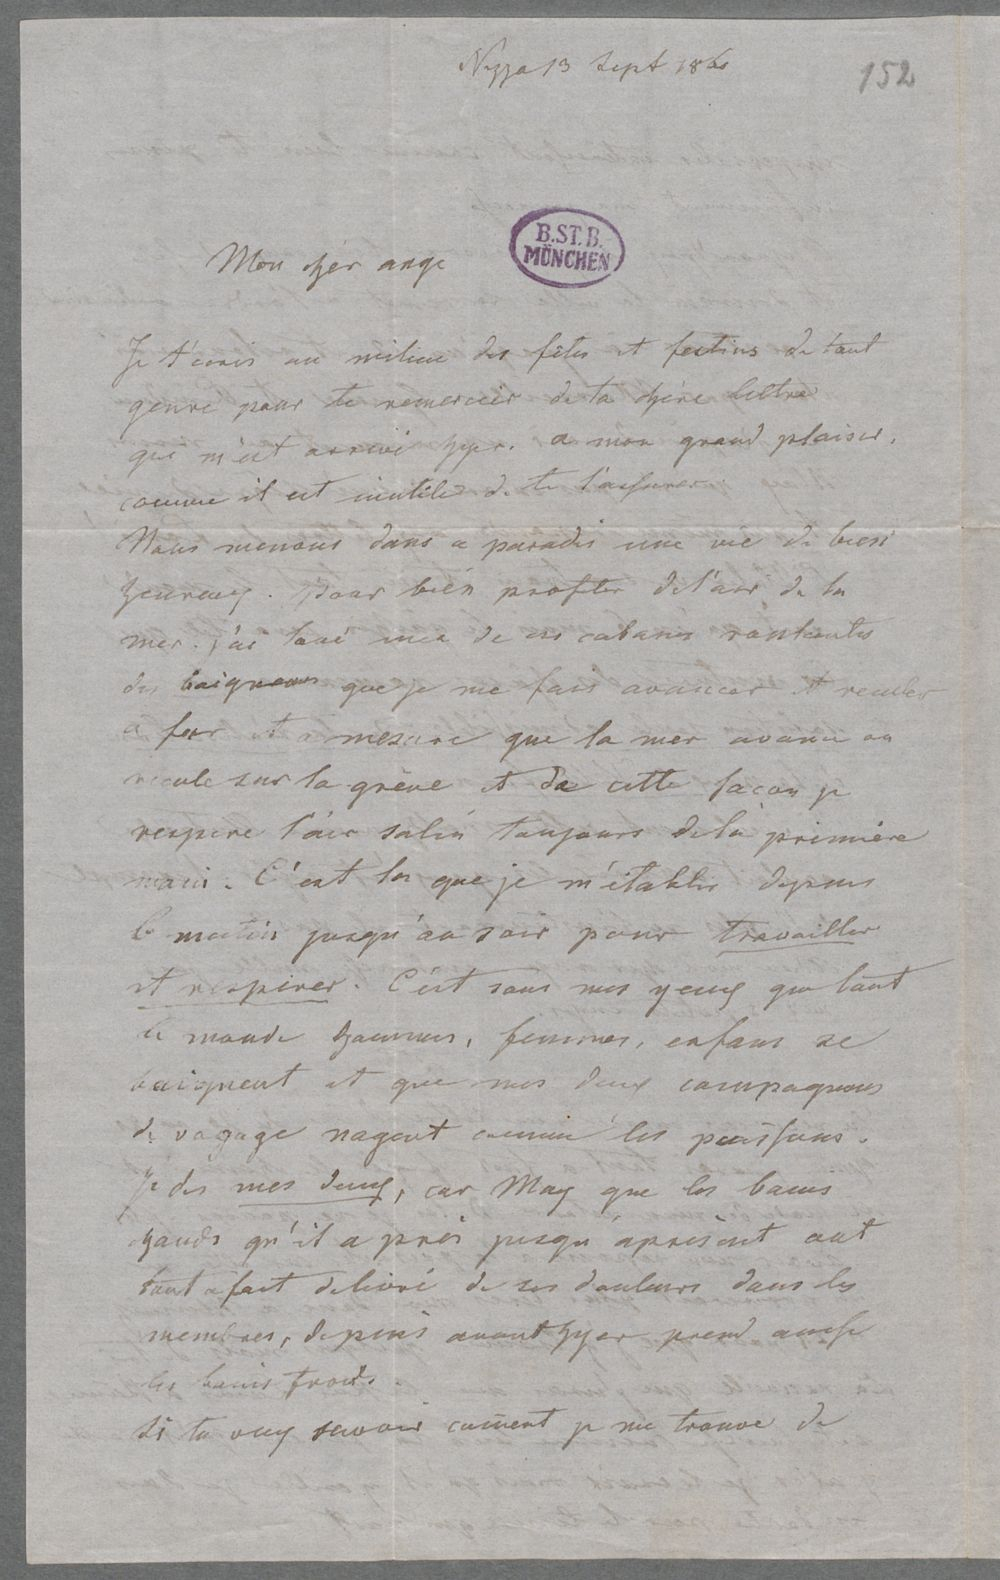 Nizza 13 Sept 1860
152
B.ST.B.
MÜNCHEN
Mon chér ange
Je t'écris au milieu des fêtes et festins de tout
genre pour te remercier de ta chére lettre
qui m'est arrivé hyer. a mon grand plaisir,
comme il est inutile de te l'assurer.
Nous menons dans ce paradis une vie de bien
heureux. Pour bien profiter de l'air de la
mer. j'ai loué une de ces cabanes roulantes
des baigneurs que je me fais avancer et reculer
a fur et a mesure que la mer avance ou
recule sur la grève et de cette façon je
respire l'air salin toujours de la première
main. C'est la que je m'établis depuis
le matin jusqu'au soir pour travailler
et respirer. C'est sous mes yeux que tout
le monde hommes, femmes, enfans se
baignent et que mes deux compagnons
de voyage nagent comme les poissons.
Je dis mes deux, car Max que les bains
chauds qu'il a pris jusqu'aprèsent ont
tout a fait delivré de ses douleurs dans les
membres, depuis avanthyer prend aussi
les bains froids.
Si tu veux savoir comment je me trouve de